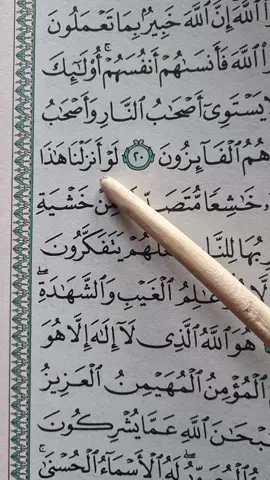 ٱللَّهَ إِنَّ ٱللَّهَ خَبِيرُۢ بِمَا تَعْمَلُونَ
ٱللَّهَ فَأَنسَىٰهُمْ أَنفُسَهُمْ ۚ أُو۟لَـٰٓئِكَ
يَسْتَوِىٓ أَصْحَـٰبُ ٱلنَّارِ وَأَصْحَـٰبُ
هُمُ ٱلْفَآئِزُونَ ٢٠ لَوْ أَنزَلْنَا هَـٰذَا
خَـٰشِعًا مُّتَصَدِّ خَشْيَةِ
لِلنَّا لَعَلَّهُمْ يَتَفَكَّرُونَ
عَـٰلِمُ ٱلْغَيْبِ وَٱلشَّهَـٰدَةِ ۖ
هُوَ ٱللَّهُ ٱلَّذِى لَآ إِلَـٰهَ إِلَّا هُوَ
ٱلْمُؤْمِنُ ٱلْمُهَيْمِنُ ٱلْعَزِيزُ
ٱللَّهِ عَمَّا يُشْرِكُونَ
لَهُ ٱلْأَسْمَآءُ ٱلْحُسْنَىٰ ۚ